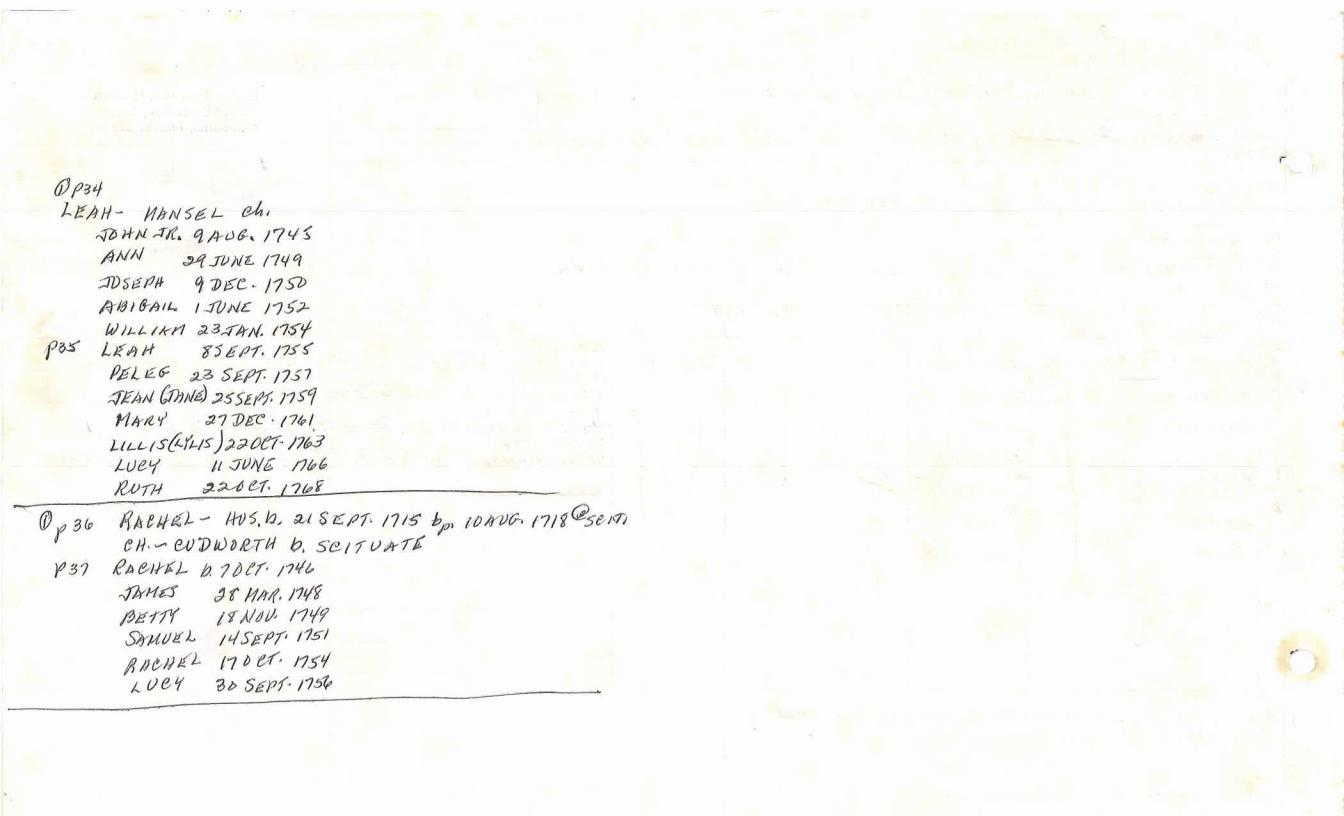 ① P34
LEAH- MANSEL ch.
JOHN JR. 9 AUG. 1745
ANN 29 JUNE 1749
JOSEPH 9 DEC. 1750
ABIGAIL 1 JUNE 1752
WILLIAM 23 JAN. 1754
P35 LEAH 8 SEPT. 1755
PELEG 23 SEPT. 1757
JEAN (JANE) 25 SEPT. 1759
MARY 27 DEC. 1761
LILLIS (LYLIS) 22 OCT. 1763
LUCY 11 JUNE 1766
RUTH 22 OCT. 1768
① p36 RACHEL- HUS. b. 21 SEPT. 1715 bp. 10 AUG. 1718 @ SCIT.
CH.- CUDWORTH b. SCITUATE
P37 RACHEL b. 7 OCT. 1746
JAMES 28 MAR. 1748
BETTY 18 NOV. 1749
SAMUEL 14 SEPT. 1751
RACHEL 17 OCT. 1754
LUCY 30 SEPT. 1756